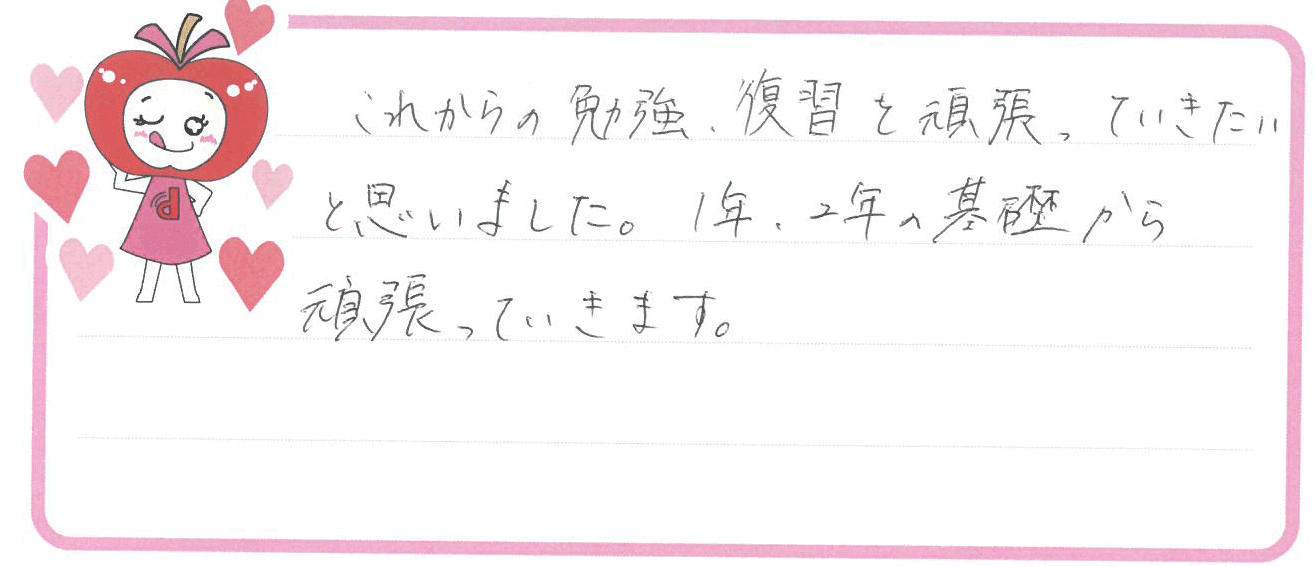 これからの勉強、復習を頑張っていきたい
と思いました。1年、2年の基礎から
頑張っていきます。